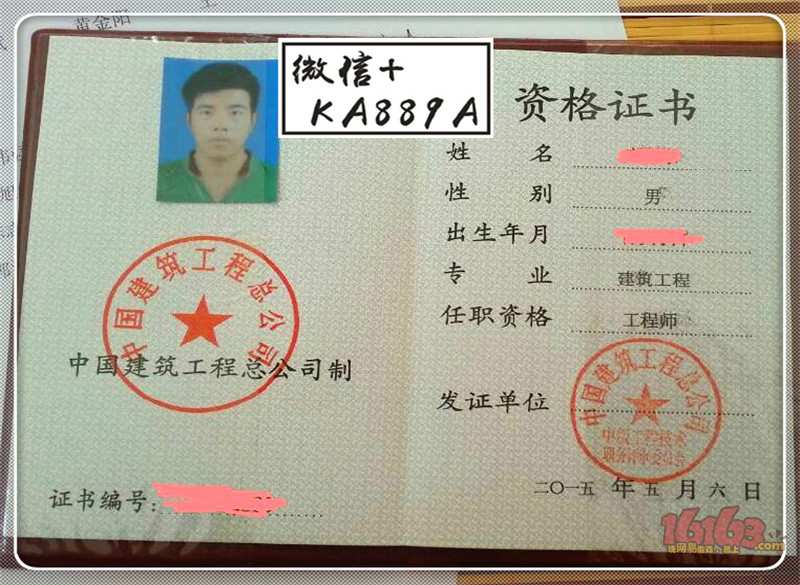 黄金阳
微信+
KA889A
资格证书
姓 名
性 别 男
出生年月
专 业 建筑工程
任职资格 工程师
发证单位
中国建筑工程总公司
中国建筑工程总公司制
中国建筑工程总公司
中级工程技术
职务评审委员会
证书编号:
二〇一五 年 五 月 六 日
16163.com